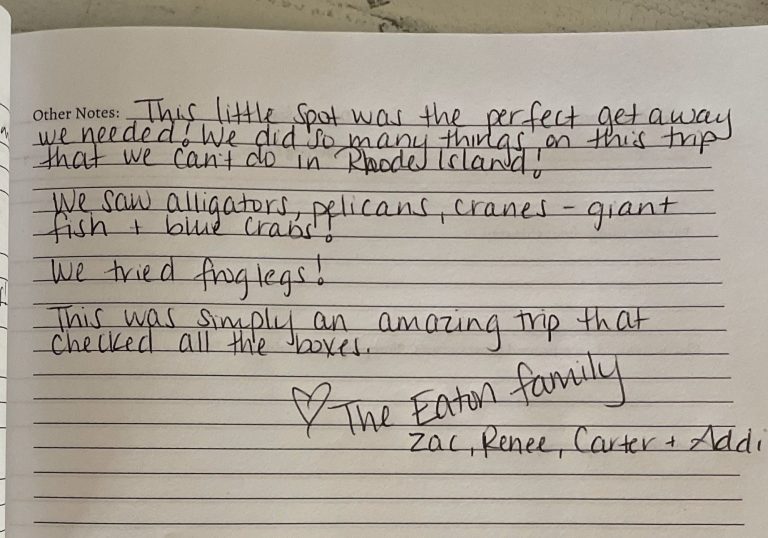 Other Notes: This little spot was the perfect get away
we needed! We did so many things on this trip
that we can't do in Rhode Island!
We saw alligators, pelicans, cranes - giant
fish + blue crabs!
We tried frog legs!
This was simply an amazing trip that
checked all the boxes.
♡ The Eaton family
Zac, Renee, Carter + Addi